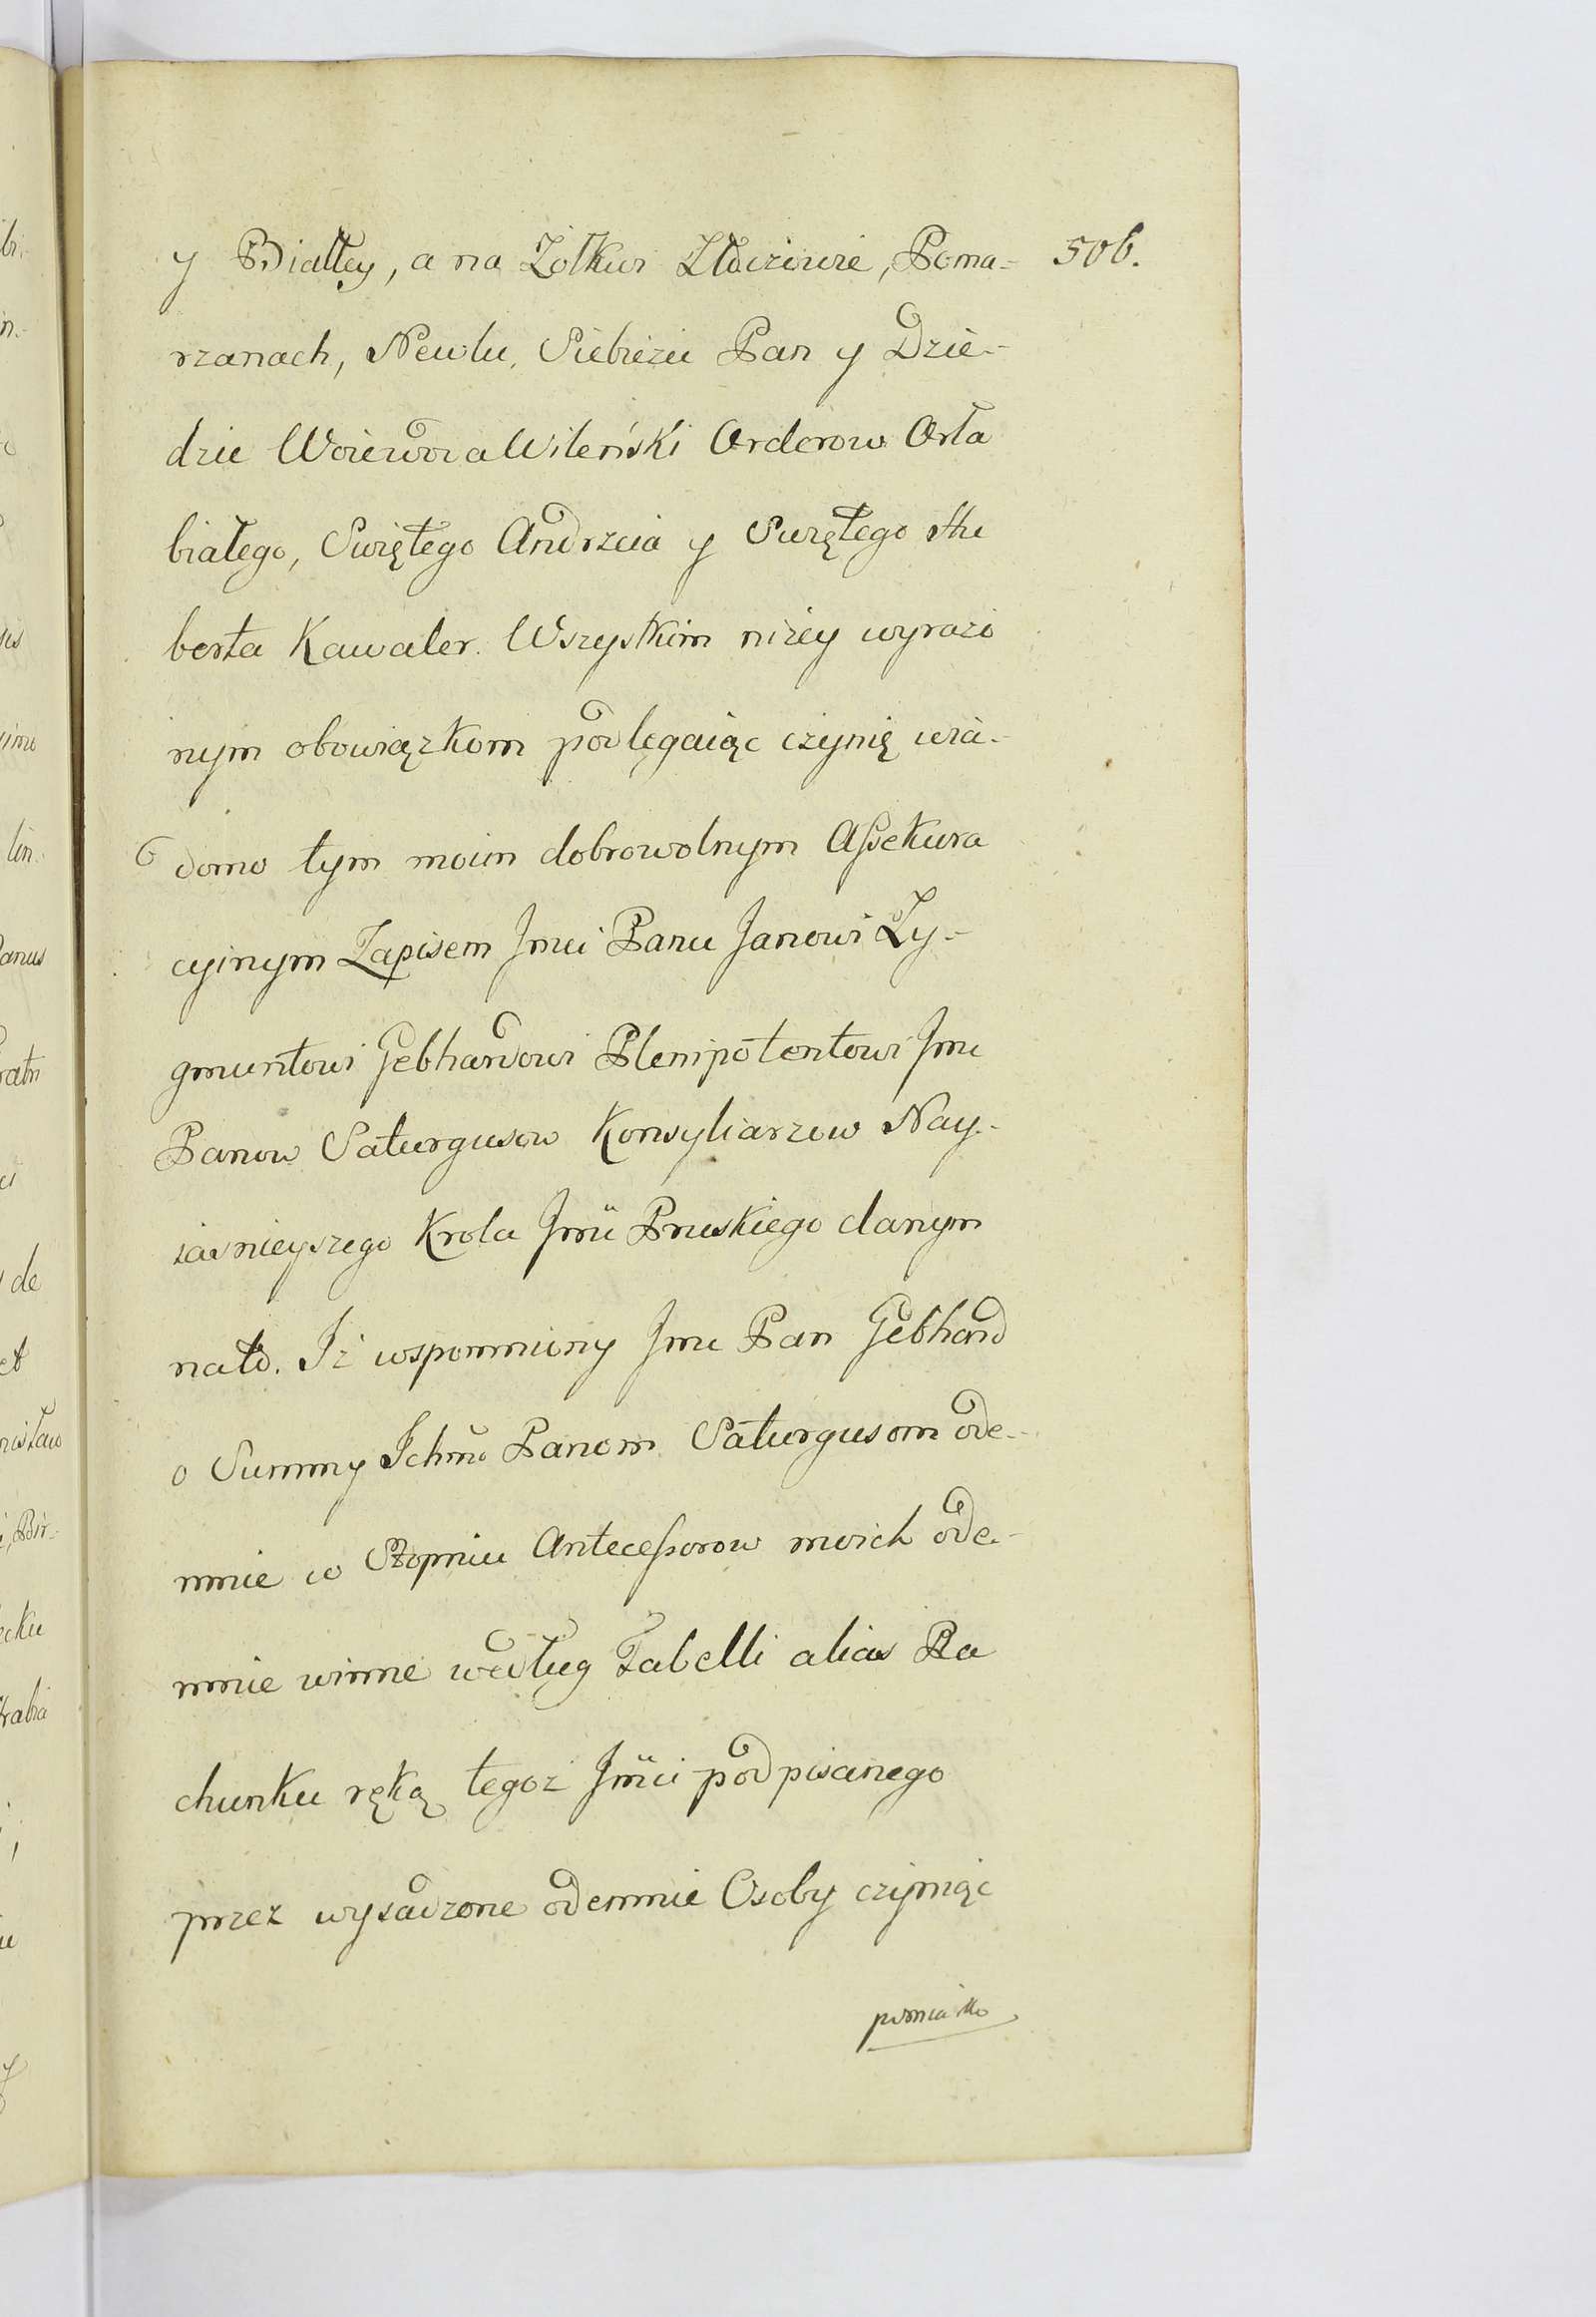 y Białłey, a na Żołkwi Złoczowie, Poma-
506.
rzanach, Newlu, Siebieżu Pan y Dzie-
dzic Woiewoda Wileński Orderow Orła
białego, Swiętego Andrzeia y Swiętego Hu
berta Kawaler. Wszystkim niżey wyrażo
nym obowiązkom podlegaiąc czynię wia-
domo tym moim dobrowolnym Assekura
cyinym Zapisem Jmci Panu Janowi Zy-
gmuntowi Gebhardowi Plenipotentowi Jmc
Panow Saturgusow Konsyliarzow Nay-
iasnieyszego Krola Jmci Pruskiego danym
nato. Iż wspomniony Jmc Pan Gebhard
o Summy Ichmc Panom Saturgusom ode-
mnie w Stopniu Antecessorow moich ode-
mnie winne według Tabelli alias Ra
chunku ręką tegoz Jmci podpisanego
przez wysadzone odemnie Osoby czyniąc